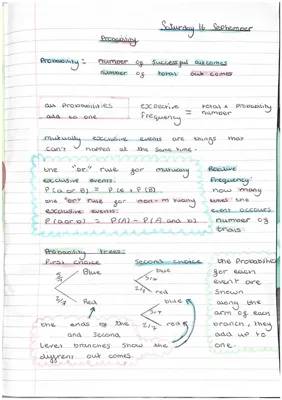 Saturday 16 September
Probability
Probability = number of successful outcomes
number of total out comes
all probabilities
add to one
expective
frequency = total x probability
number
mutually exclusive events are things that
can't happen at the same time.
the "or" rule for mutually
exclusive events:
P(a or b) = P(a + P(B).
the "or" rule for non-m
exclusive events:
P(a or b) = P(A) - P(A and b)
Relative
Frequency:
how many
times the
event occurs
number of
trials
Probability trees:
First choice
Second choice
Blue
Red
blue
red
blue
red
the ends of the
and second
Level branches show the
different out comes.
the Probabilities
for each
event are
shown
along the
arm of each
branch, they
add up to
one.